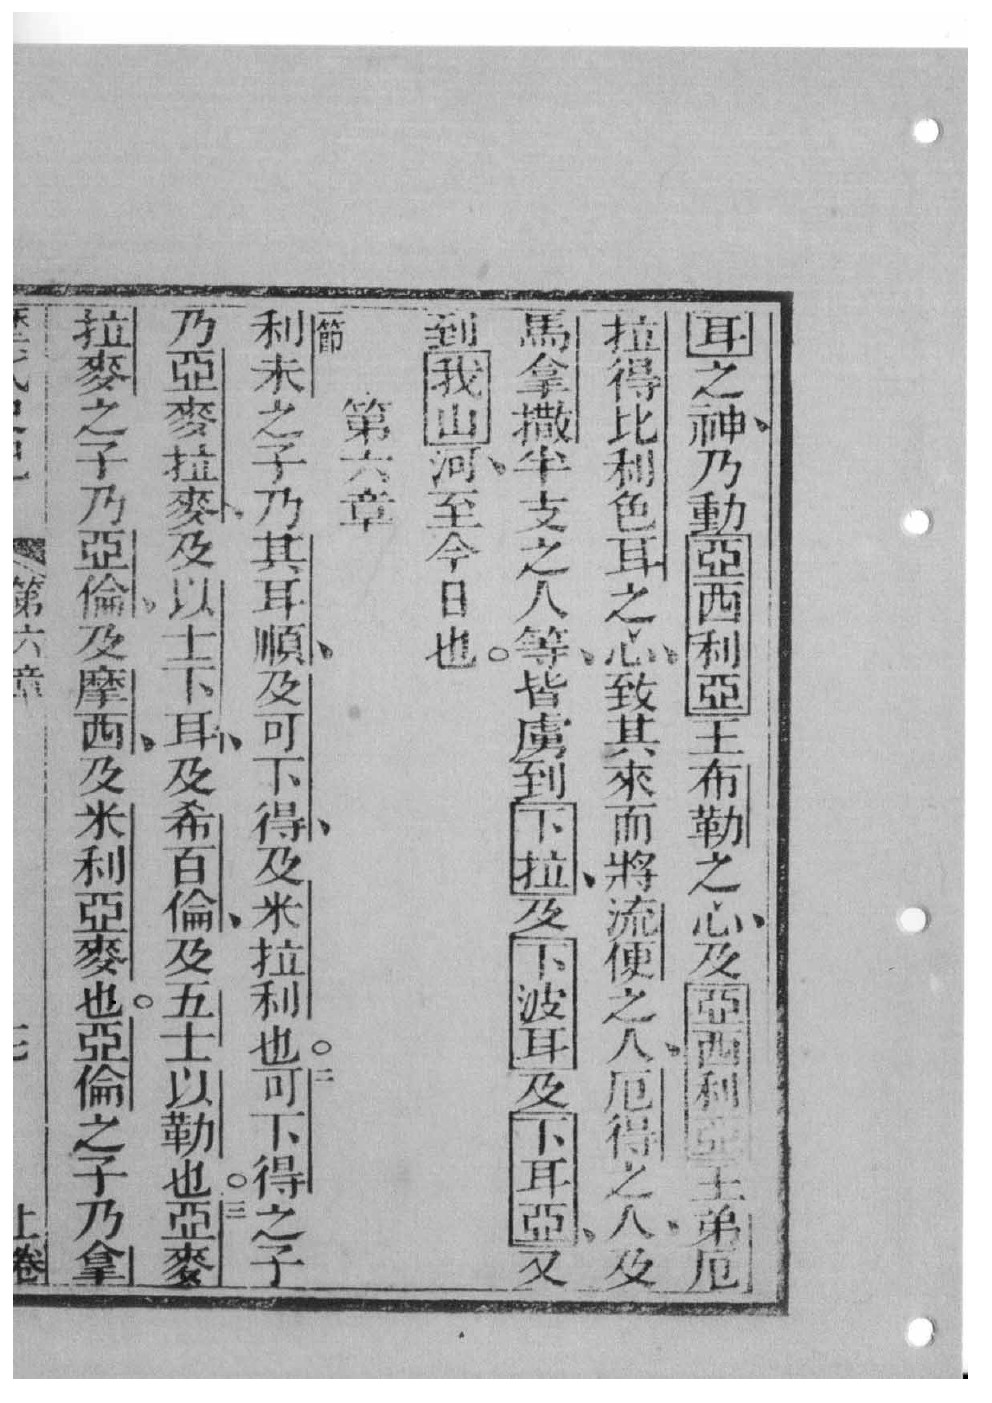 耳之神、乃動亞西利亞王布勒之心、及亞西利亞王弟厄
拉得比利色耳之心、致其來而將流便之人、厄得之人、及
馬拿撒半支之人等、皆虜到下拉、及下波耳及下耳亞、又
到我山河、至今日也。
第六章
一節利未之子乃其耳順、及可下得、及米拉利也。二可下得之子
乃亞麥拉麥、及以士下耳、及希百倫、及五士以勒也。三亞麥
拉麥之子乃亞倫、及摩西、及米利亞麥也。亞倫之子乃拿
第六章 上卷